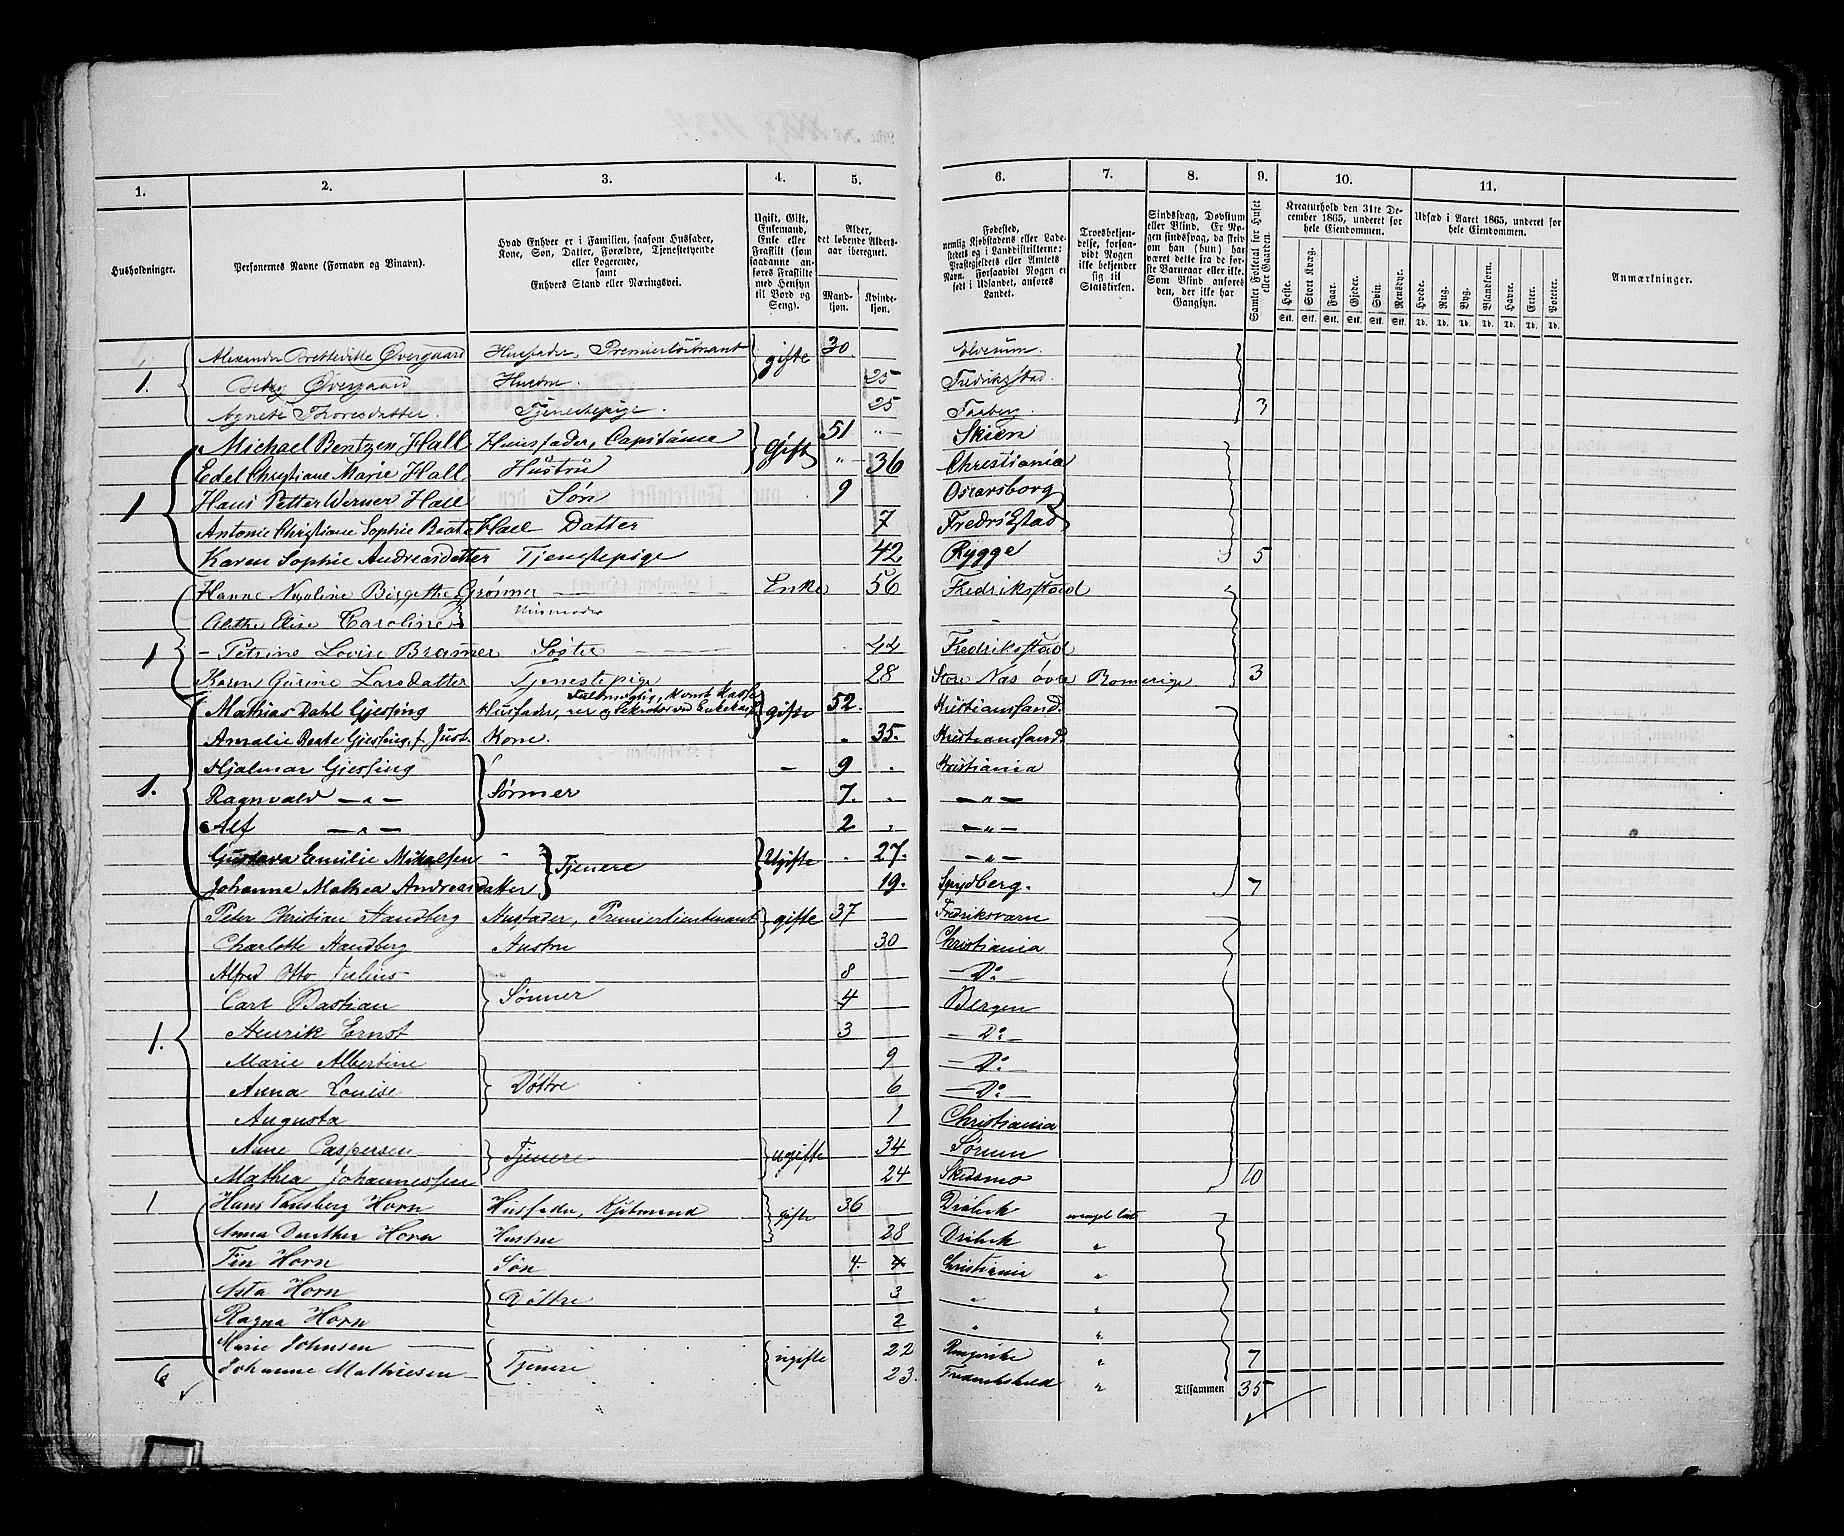 1. 2. 3. 4. 5. 6. 7. 8. 9. 10. 11.
Husholdninger.
Personernes Navne (Fornavn og Binavn).
Hvad Enhver er i Familien, saasom Husfader, Kone, Søn, Datter, Forældre, Tjenestetyende eller Logerende, samt Enhvers Stand eller Næringsvei.
Ugift, Gift, Enkemand, Enke eller Fraskilt (som saadanne anføres Fraskilte med Hensyn til Bord og Seng).
Alder, det løbende Alders-aar iberegnet.
Mandkjøn. Kvindekjøn.
Fødested, nemlig Kjøbstadens eller Ladestedets og i Landdistrikterne: Præstegjeldets eller Amtets Navn. Forsaavidt Nogen er født i Udlandet, anføres Landet.
Troesbekjendelse, forsaavidt Nogen ikke bekjender sig til Statskirken.
Sindssvag, Døvstum eller Blind. Er Nogen sindssvag, da skriv om han (hun) har været dette fra de første Barneaar eller ikke. Som Blind anføres den, der ikke har Gangsyn.
Samlet Folketal for Huset eller Gaarden.
Kreaturhold den 31te December 1865, underet for hele Eiendommen.
Heste. Stort Kvæg. Faar. Gjeder. Svin. Rensdyr.
Stk. Stk. Stk. Stk. Stk. Stk.
Udsæd i Aaret 1865, underet for hele Eiendommen.
Hvede. Rug. Byg. Blandkorn. Havre. Erter. Poteter.
Td. Td. Td. Td. Td. Td. Td.
Anmærkninger.
Alexander Bretteville Øvergaard Husfader, Premierløitnant gifte 30 Elverum.
1. Betsy Øvergaard Hustru. 25 Fredrikstad.
Agnete Thoresdatter. Tjenestepige. 25 Faaberg. 3
Michael Bentzen Hall Huusfader, Capitaine Gift 51 " Skien
Edel Christiane Marie Hall Hustru " 36 Christiania
1 Hans Petter Werner Hall Søn 9 Oscarsborg
Antonie Christiane Sophie Beata Hall Datter 7 Fredrikstad
Karen Sophie Andreasdatter Tjenstepige 42 Rygge 5
Hanne Nicoline Birgethe Grønner Enke 56 Fredrikstad
Alethe Elise Caroline
1 - Petrine Lovise Bramer Søster 44 Fredrikstad
Karen Gurine Larsdatter Tjenestepige 28 Store Næs øvre Romerige 3
Mathias Dahl Gjessing Husfader, gifte 52. Kristianssand.
Amalie Beate Gjessing, f. Just. Kone. 35. Kristianssand.
Hjalmar Gjessing Sønner — 9 Kristiania
1. Ragnvald —"— 7. —"—
Alf —"— 2 —"—
Gustava Emilie Mikalsen Tjenere Ugifte 27. —"—
Johanne Mathea Andreasdatter 19. Spydberg. 7
Peter Christian Handberg Husfader, Premierlieutenant gifte 37 Fredriksværn
Charlotte Handberg Hustru 30 Christiania
Alfred Otto Julius 8 — Do
Carl Bastian Sønner 4 Bergen
1. Henrik Ernst 3 — Do —
Marie Albertine 9 — Do —
Anna Louise Døttre 6 — Do —
Augusta 1 Christiania
Anne Caspersen Tjenere ugifte 34 Sørum
Mathea Johannessen 24 Skedsmo 10
1 Hans Tønsberg Horn Husfader, Kjøbmand gifte 36 Drøbak
Anna Dorthea Horn Hustru 28 Drøbak "
Finn Horn Søn 4. 4 Christiania "
Asta Horn Døttre 3 " "
Ragna Horn 2 " "
Marie Johnsen Tjenere ugifte 22 Ringerike " 7
6 Johanne Mathiesen 23. Frederikshald " Tilsammen 35